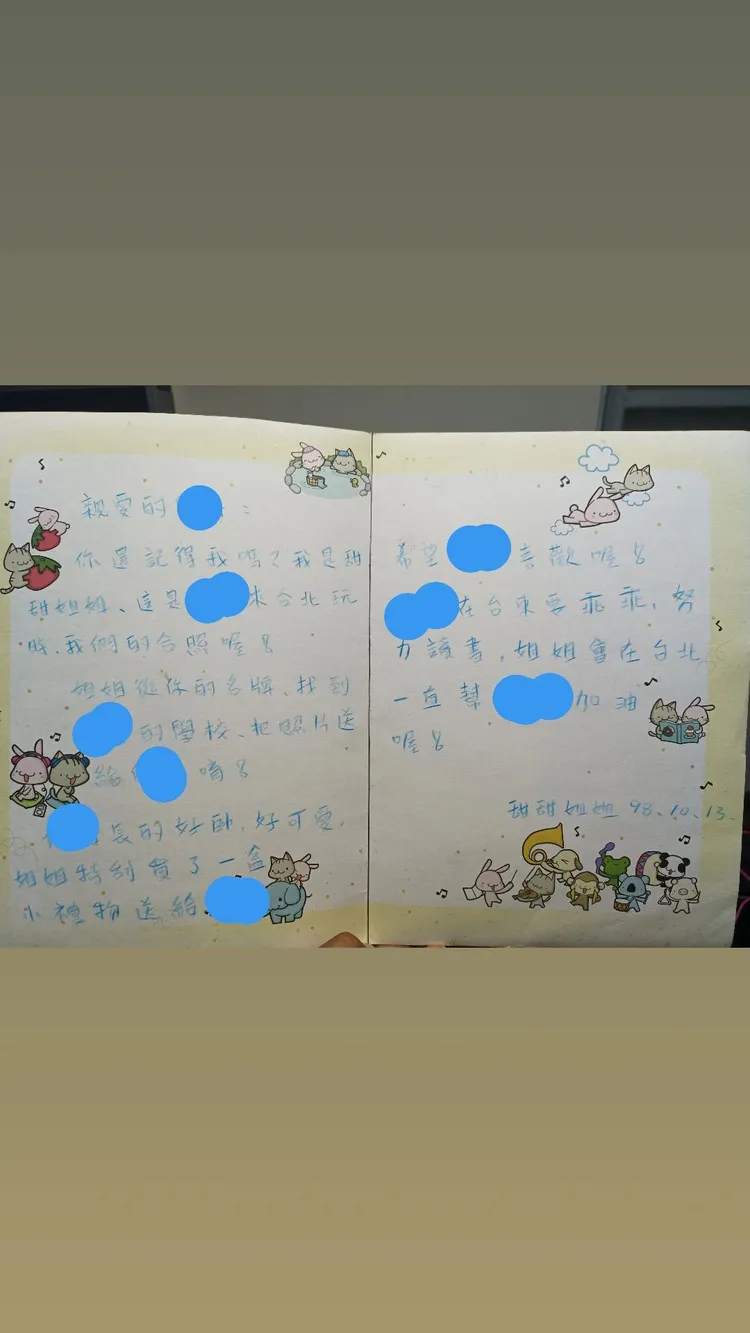 親愛的 :
你還記得我嗎?我是甜
甜姐姐、這是 來台北玩
時、我們的合照喔!
姐姐從你的名牌、找到
的學校、把照片送
給 唷!
長的好帥、好可愛,
姐姐特別買了一盒
小禮物送給
希望 喜歡喔!
在台東要乖乖,努
力讀書,姐姐會在台北
一直幫 加油
喔!
甜甜姐姐 98.10.13.